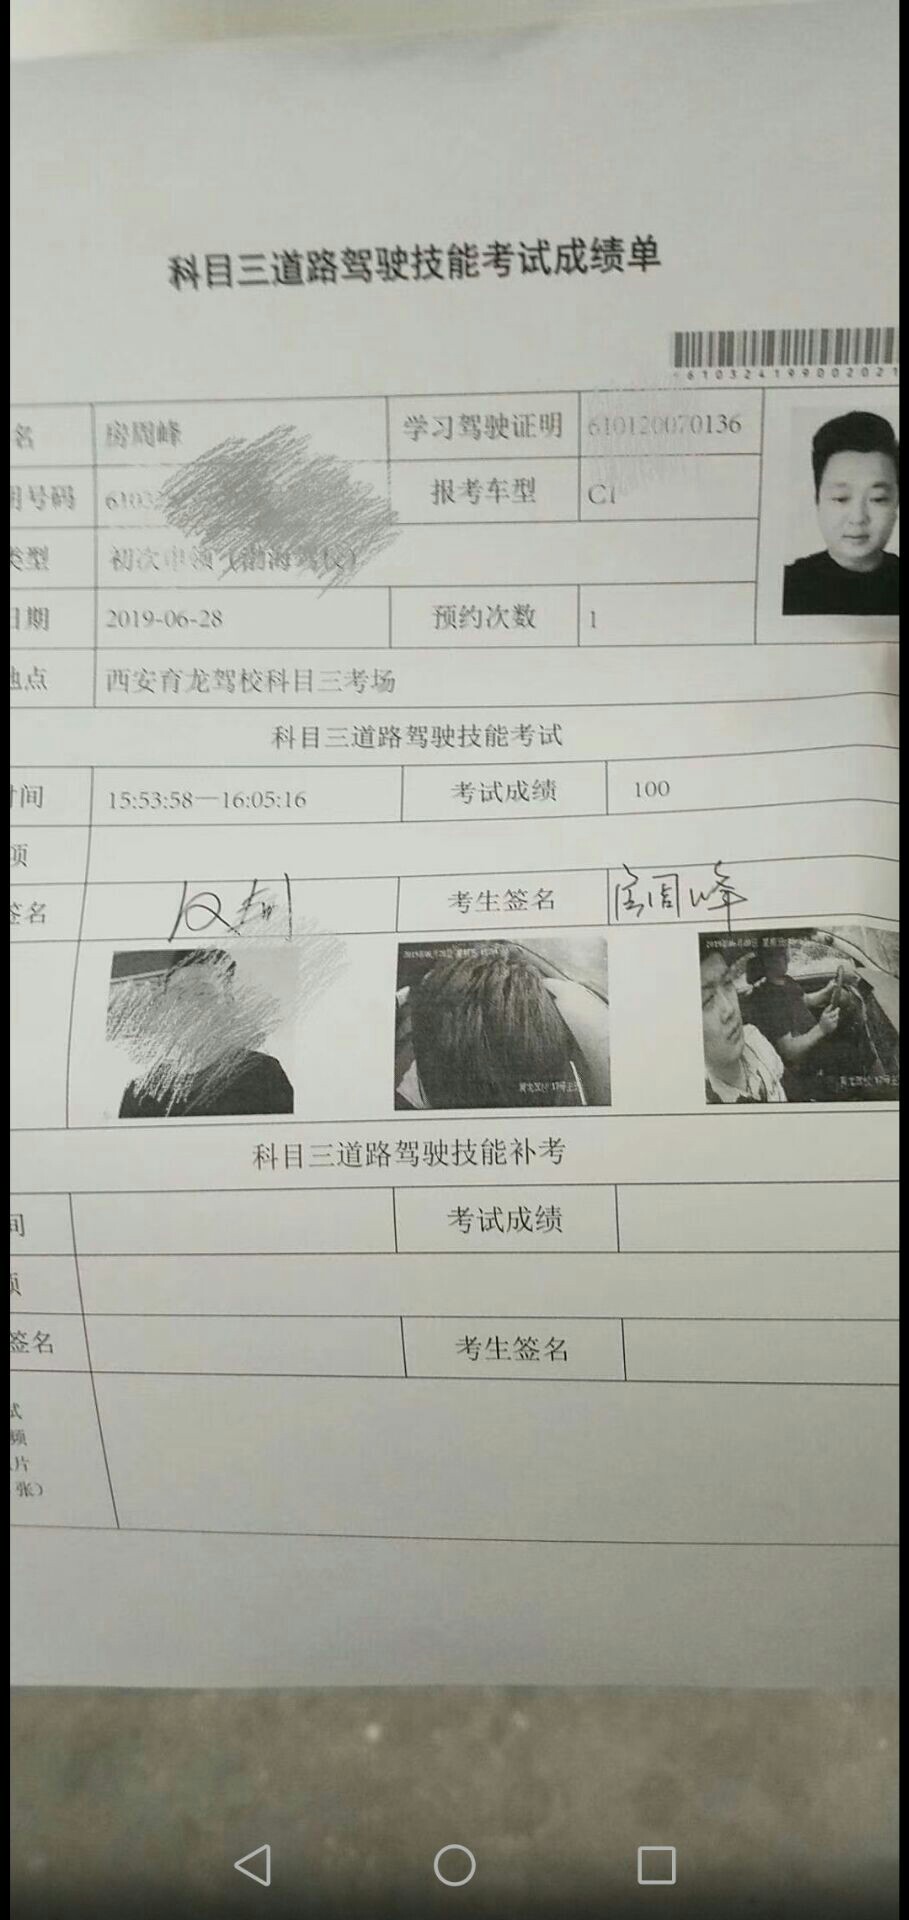 科目三道路驾驶技能考试成绩单
610324199002021
名 房周峰 学习驾驶证明 610120070136
号码 610 报考车型 C1
类型 初次申领（渤海驾校）
日期 2019-06-28 预约次数 1
地点 西安育龙驾校科目三考场
科目三道路驾驶技能考试
时间 15:53:58—16:05:16 考试成绩 100
项
签名 考生签名 房周峰
科目三道路驾驶技能补考
间 考试成绩
项
签名 考生签名
试
频
片
张）